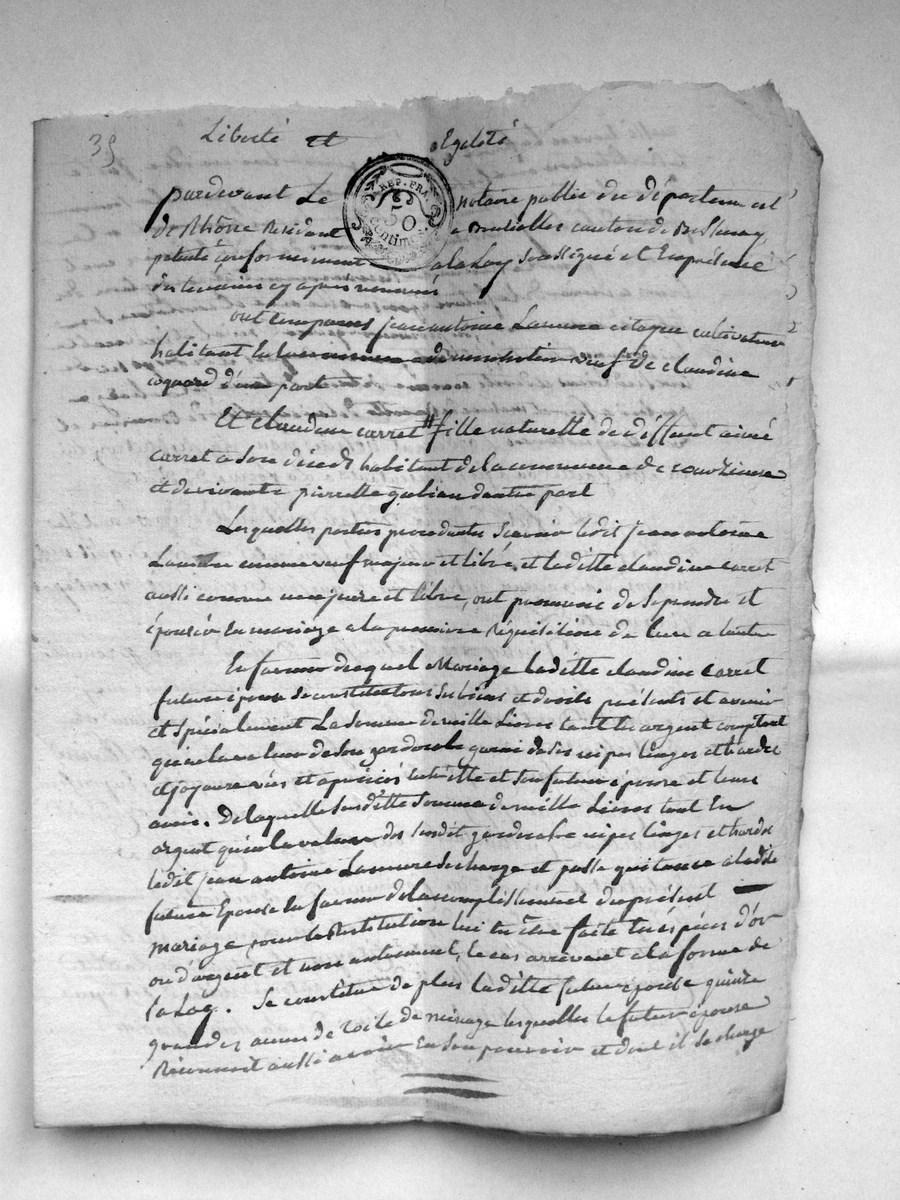 39
Liberté et Egalité
REP. FRA.
50
centimes
pardevant Le notaire public du département
de Rhône Résident a Brullioles canton de Bessenay
patenté conformément a la Loy soussigné et En présence
des témoins cy après nommés
ont comparus jean antoine Lamure citoyen cultivateur
habitant En la commune de veuf de claudine
coquard d'une part
Et claudine carret fille naturelle de déffunt aimé
carret a son décedt habitant de la commune de
et de vivante pierrette gubian dautre part
Lesquelles parties procedantes scavoir ledit jean antoine
Lamure comme veuf majeur et libre et laditte claudine carret
aussi comme majeure et libre, ont promis de se prendre et
épouser En mariage a la premiere Réquisitions de lun a lautre
En faveur duquel Mariage laditte claudine carret
future épouse se constitue tous ses biens et droits présents et avenir
et spécialement La somme de mille Livres tant En argent comptant
qu'en la valeur de son garderobe garni de ses nipes linges et hardes
et joyaux vûs et apréciés entr'elle et son futur épouse et leurs
amis. De laquelle susditte somme de mille Livres tant En
argent qu'en la valeur des susdit garderobe nipes linges et hardes
ledit jean antoine Lamure se charge et passe quitance a ladite
future Epouse En faveur de lacomplissement du présent
mariage pour la Restitution lui En être faite En espéces d'or
ou d'argent et non autrement, le cas arrivant a la forme de
la Loy. Se constitue de plus laditte future épouse quinze
grandes aunes de toile de ménage lesquelles le futur épouse
Réconnoit aussi avoir En son pouvoir et dont il se charge